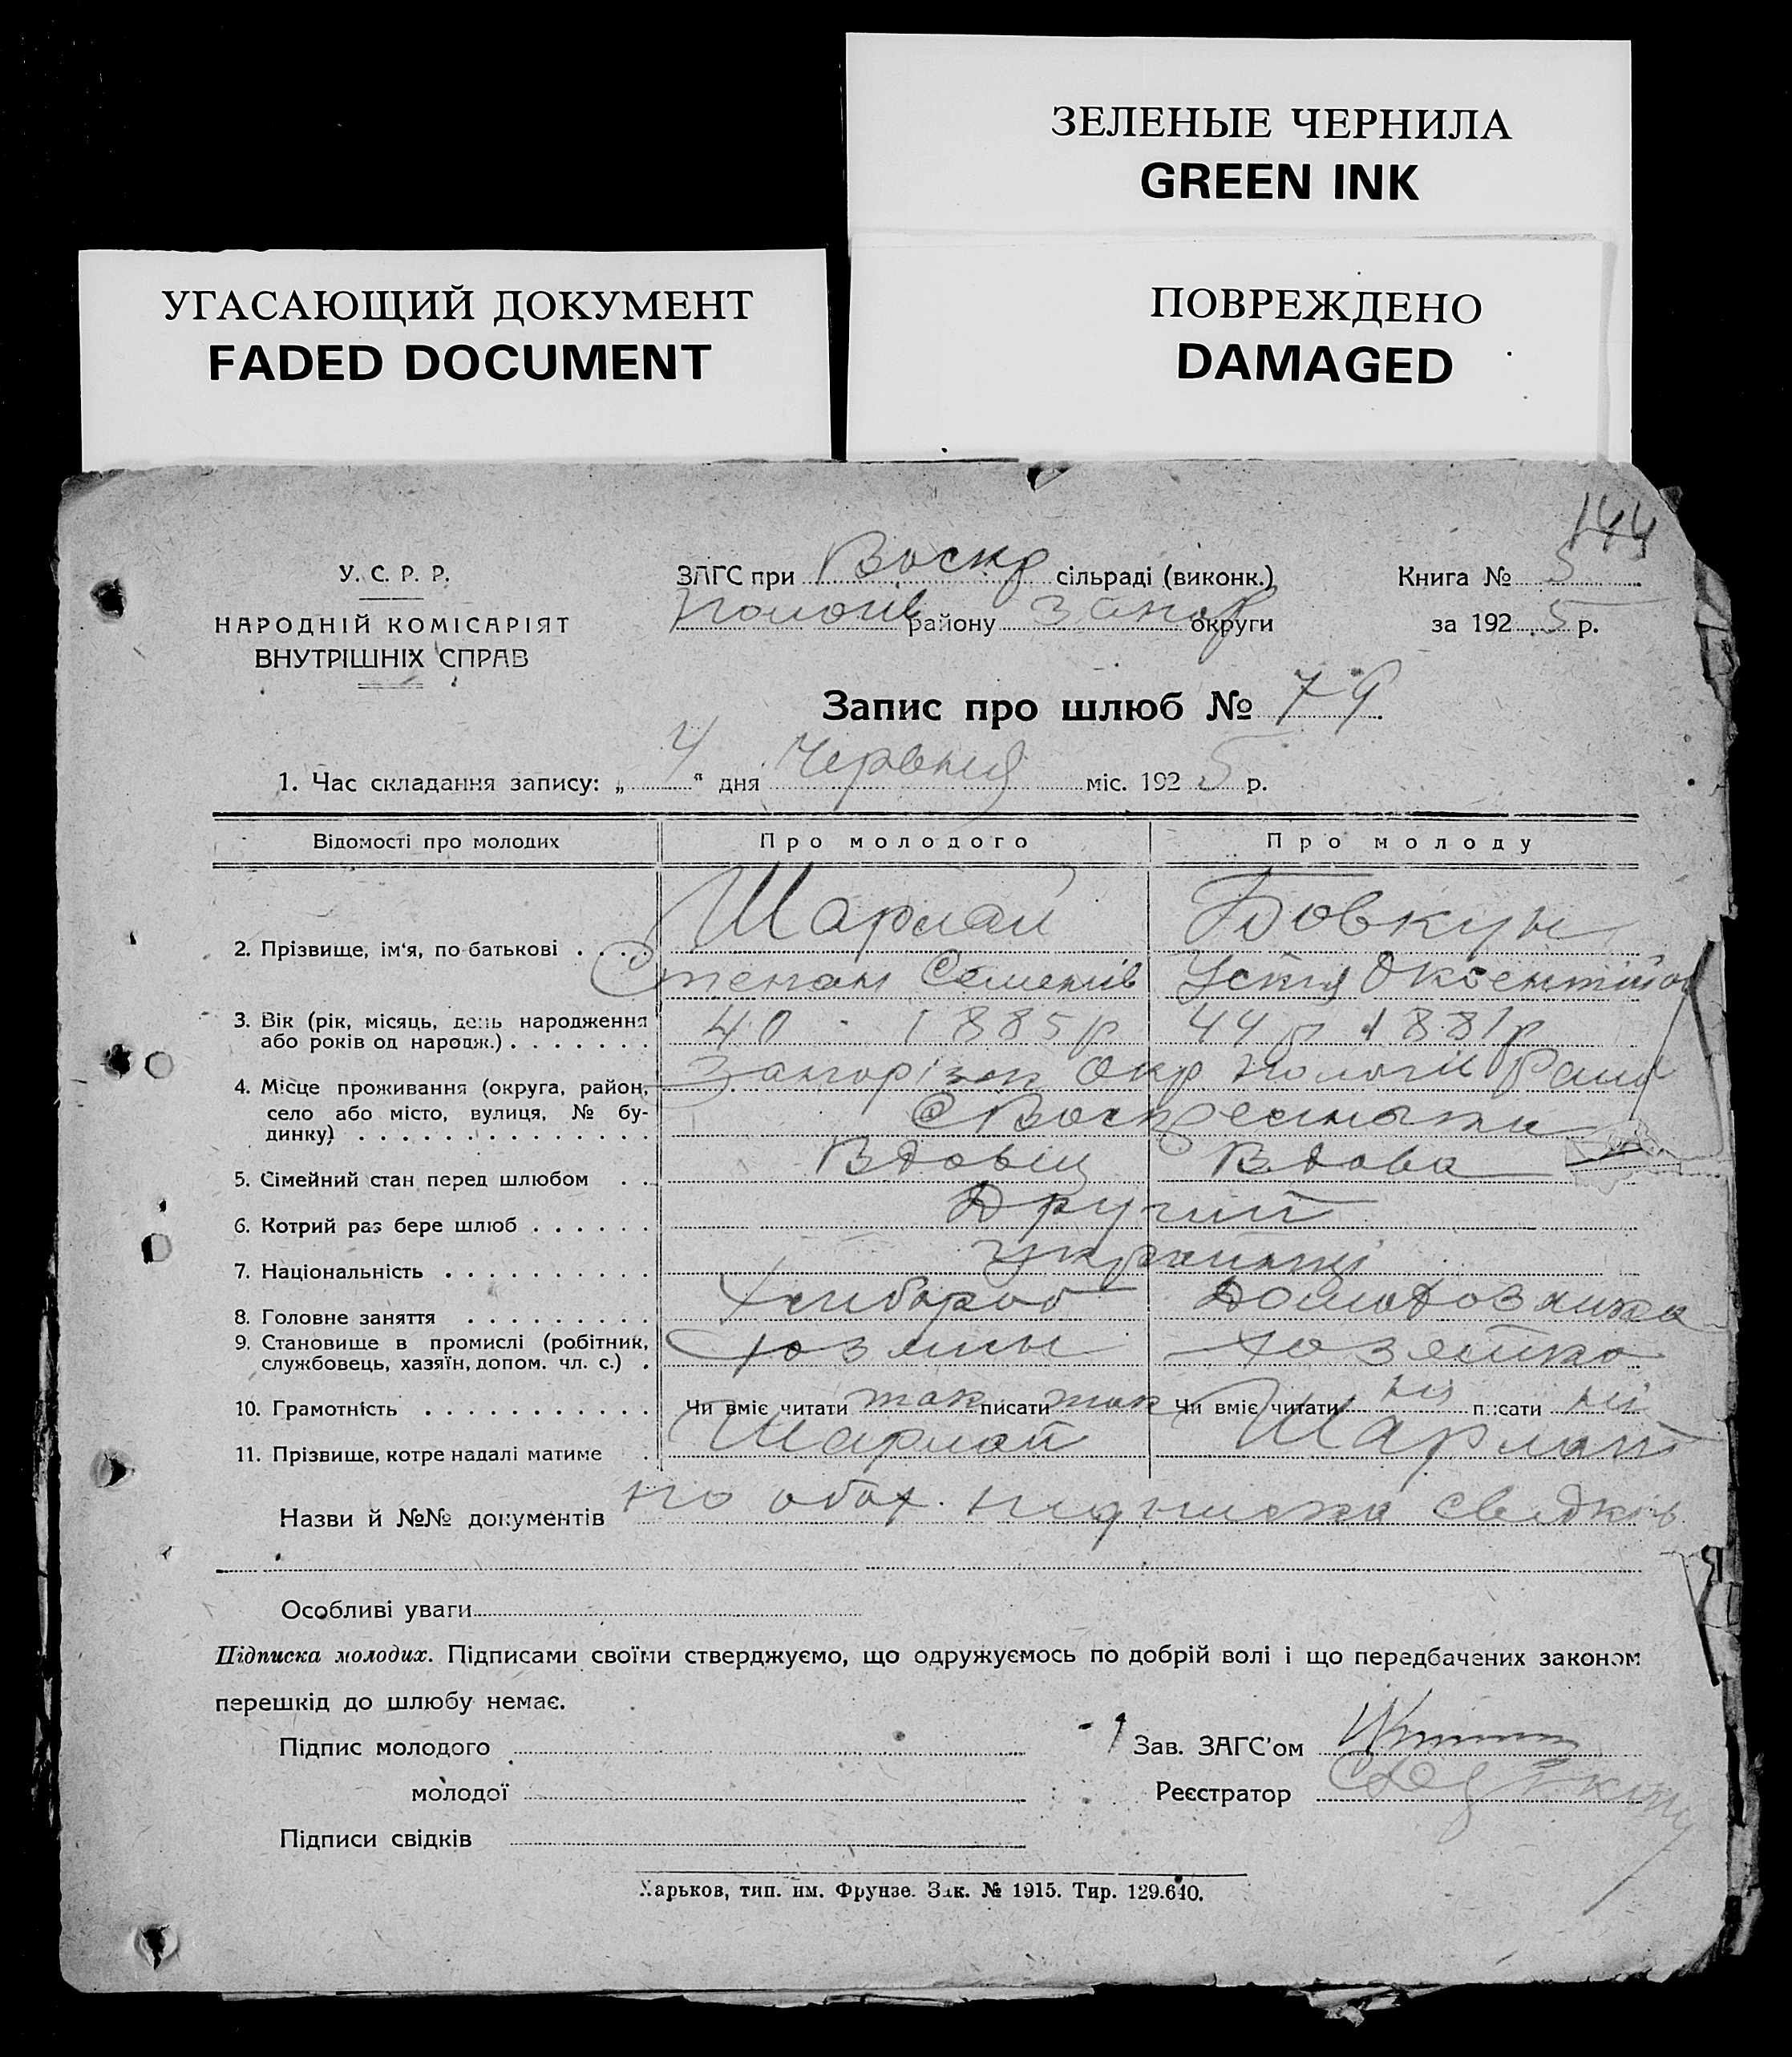 ЗЕЛЕНЫЕ ЧЕРНИЛА
GREEN INK
УГАСАЮЩИЙ ДОКУМЕНТ
FADED DOCUMENT
ПОВРЕЖДЕНО
DAMAGED
144
У. С. Р. Р.
НАРОДНІЙ КОМІСАРІЯТ
ВНУТРІШНІХ СПРАВ
ЗАГС при Воскр сільраді (виконк.)
Пологів району Запор округи
Книга № 5
за 1925 р.
Запис про шлюб № 79
1. Час складання запису: „4“ дня Червня міс. 1925 р.
Відомості про молодих Про молодого Про молоду
2. Прізвище, ім‘я, по батькові . . . . Шарлай Бовкун
Степан Семенів Устя
3. Вік (рік, місяць, день народження 40 - 1885 р 44 р 1881 р
або років од народж.) . . . . . . .
4. Місце проживання (округа, район, Запоріжж Окр Пологів Району
село або місто, вулиця, № бу-
динку) . . . . . . . . . . . . . . С Воскресенька
5. Сімейний стан перед шлюбом . . Вдовець Вдова
6. Котрий раз бере шлюб . . . . . . Другий
7. Національність . . . . . . . . . . українці
8. Головне заняття . . . . . . . . . Хлібороб
9. Становище в промислі (робітник,
службовець, хазяїн, допом. чл. с.) . Хозяїн Хозяйка
10. Грамотність . . . . . . . . . . . Чи вміє читати так писати так Чи вміє читати ні писати ні
11. Прізвище, котре надалі матиме . Шарлай Шарлай
Назви й №№ документів підписка свідків
Особливі уваги
Підписка молодих. Підписами своїми стверджуємо, що одружуємось по добрій волі і що передбачених законом
перешкід до шлюбу немає.
Підпис молодого
молодої
Підписи свідків
Зав. ЗАГС’ом
Реєстратор
Харьков, тип. им. Фрунзе. Зак. № 1915. Тир. 129.640.